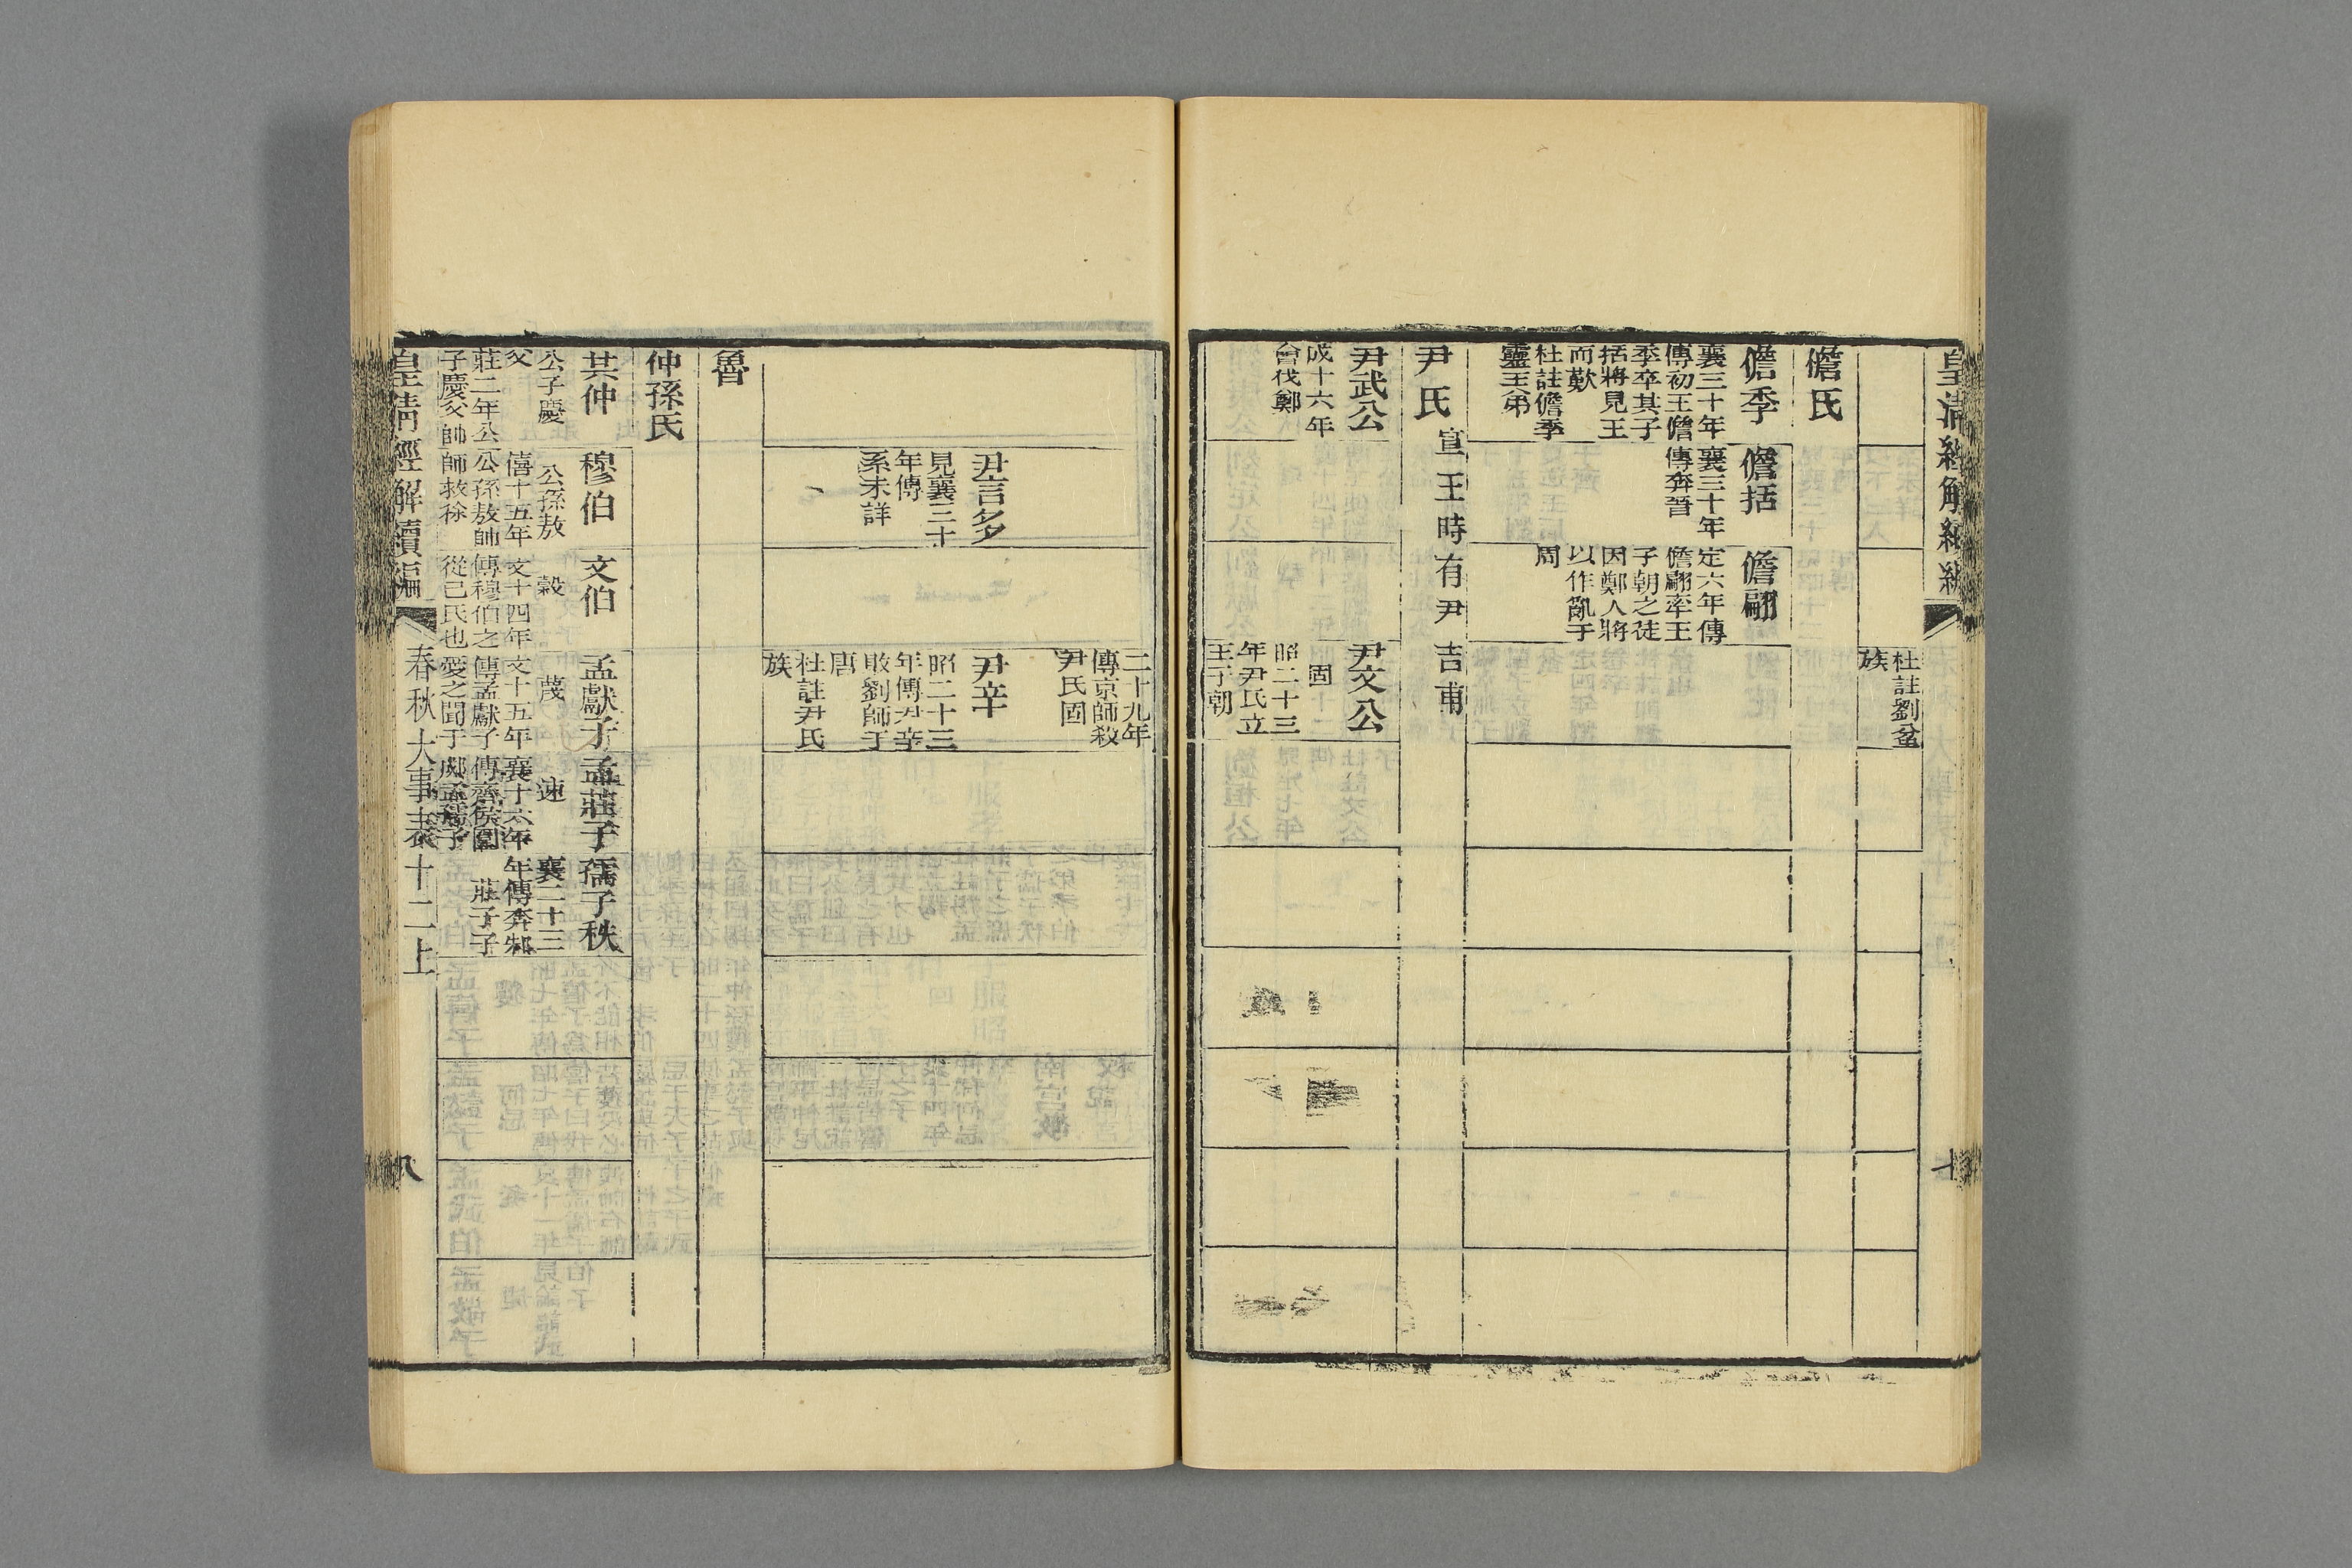 杜註劉盆
族
儋氏
儋季
襄三十年
傳初王儋
季卒其子
括將見王
而歎
杜註儋季
靈王弟
儋括
襄三十年
傳奔晉
儋翩
定六年傳
儋翩率王
子朝之徒
因鄭人將
以作亂于
周
尹氏
宣王時有尹吉甫
尹武公
成十六年
會伐鄭
尹文公
固
昭二十三
年尹氏立
王子朝
二十九年
傳京師殺
尹氏固
尹言多
見襄三十
年傳
系未詳
尹辛
昭二十三
年傳尹辛
敗劉師于
唐
杜註尹氏
族
魯
仲孫氏
共仲
公子慶
父
莊二年公
子慶父帥
穆伯
公孫敖
僖十五年
公孫敖帥
師救徐
文伯
穀
文十四年
傳穆伯之
從己氏也
孟獻子
蔑
文十五年
傳孟獻子
愛之聞于
孟莊子
速
襄十六年
傳齊侯圍
郕孟孺子
孺子秩
襄二十三
年傳奔邾
莊子子
皇清經解續編
春秋大事表十二上
八